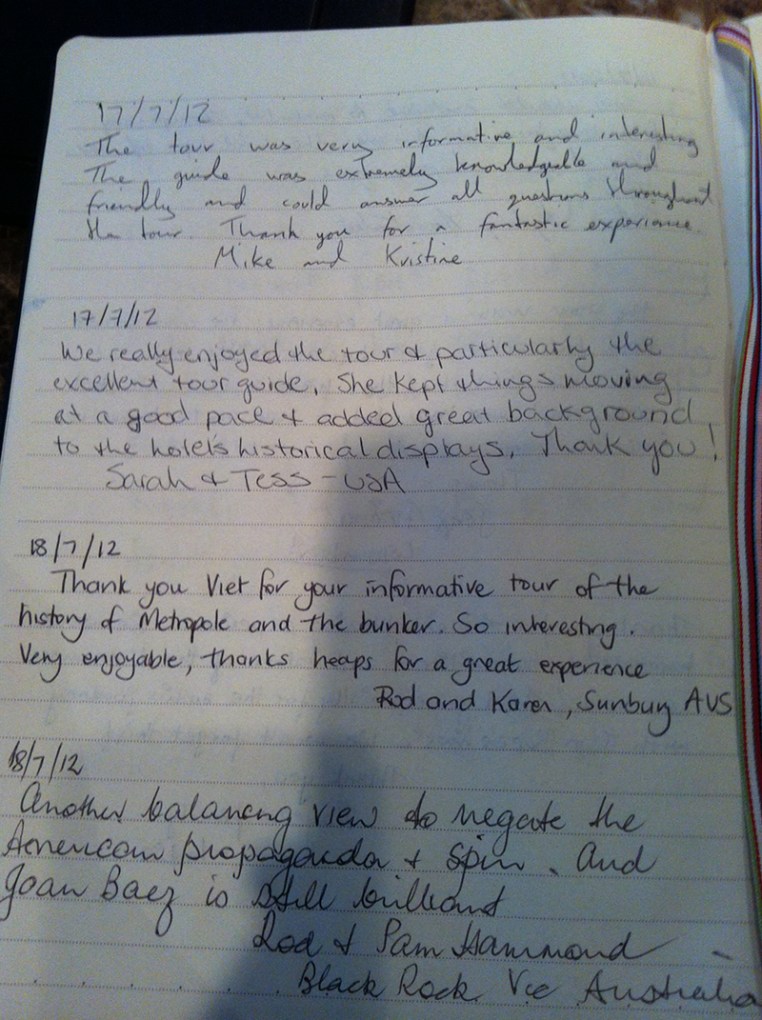 17/7/12
The tour was very informative and interesting
The guide was extremely knowledgeable and
friendly and could answer all questions throughout
the tour. Thank you for a fantastic experience.
Mike and Kristine
17/7/12
We really enjoyed the tour & particularly the
excellent tour guide. She kept things moving
at a good pace & added great background
to the hotels historical displays. Thank you!
Sarah & Tess - USA
18/7/12
Thank you Viet for your informative tour of the
history of Metropole and the bunker. So interesting.
Very enjoyable, thanks heaps for a great experience
Rod and Karen, Sunbury AUS
18/7/12
Another balancing view to negate the
American propaganda & spin. And
Joan Baez is still brilliant
Rod & Pam Hammond -
Black Rock Vic Australia